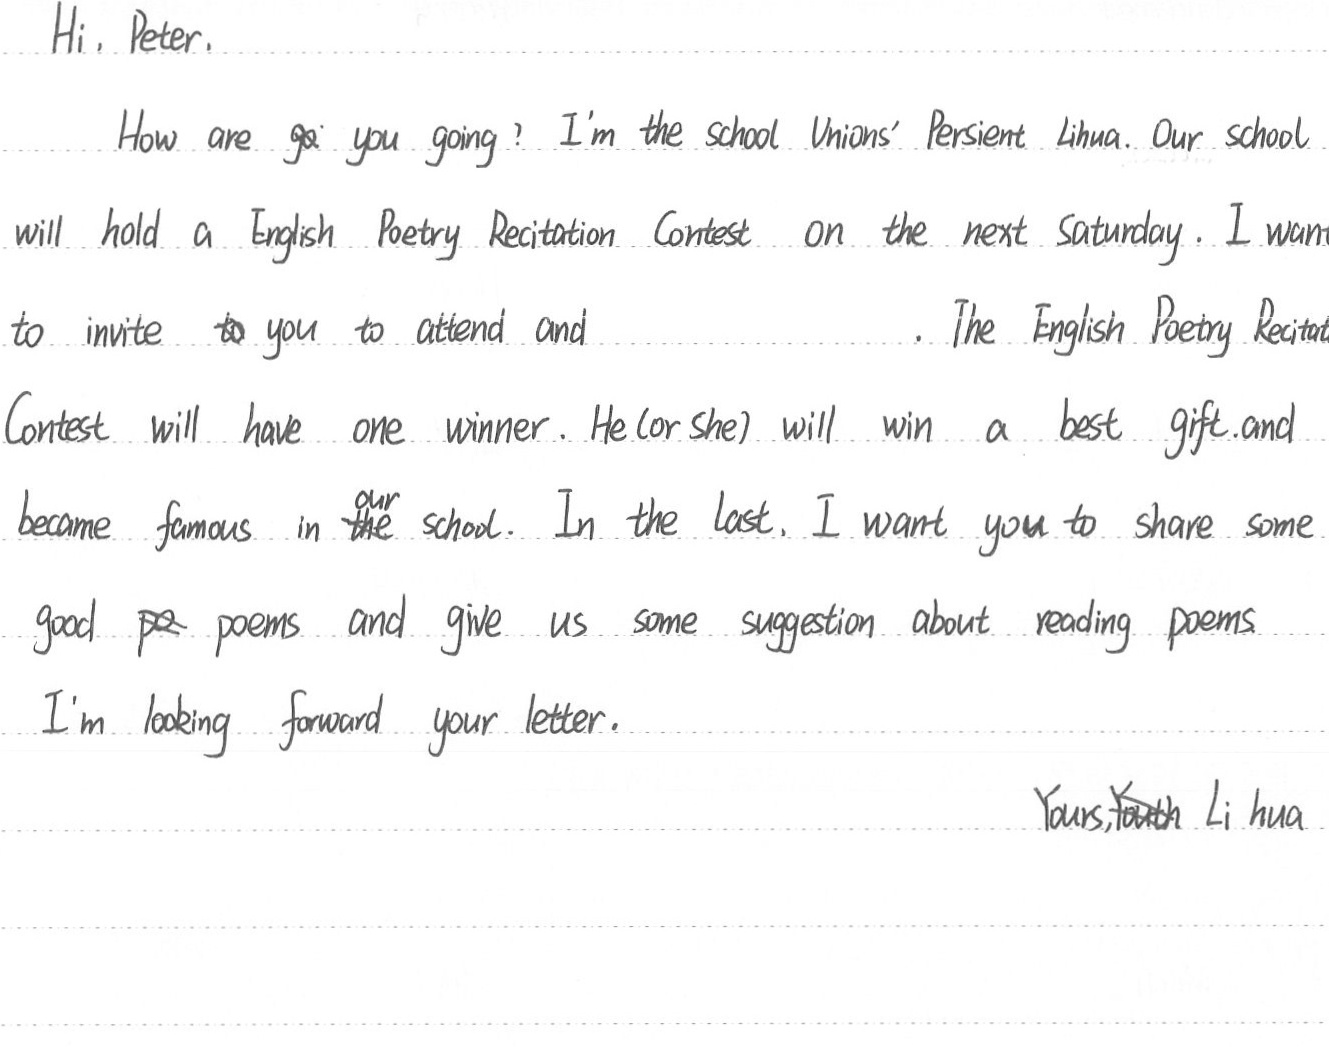 Hi, Peter.
How are you going? I'm the school Unions' Persient Lihua. Our school
will hold a English Poetry Recitation Contest on the next Saturday. I want
to invite you to attend and . The English Poetry Recitat
Contest will have one winner. He (or She) will win a best gift.and
became famous in our school. In the last, I want you to share some
good poems and give us some suggestion about reading poems
I'm looking forward your letter.
Yours, Li hua